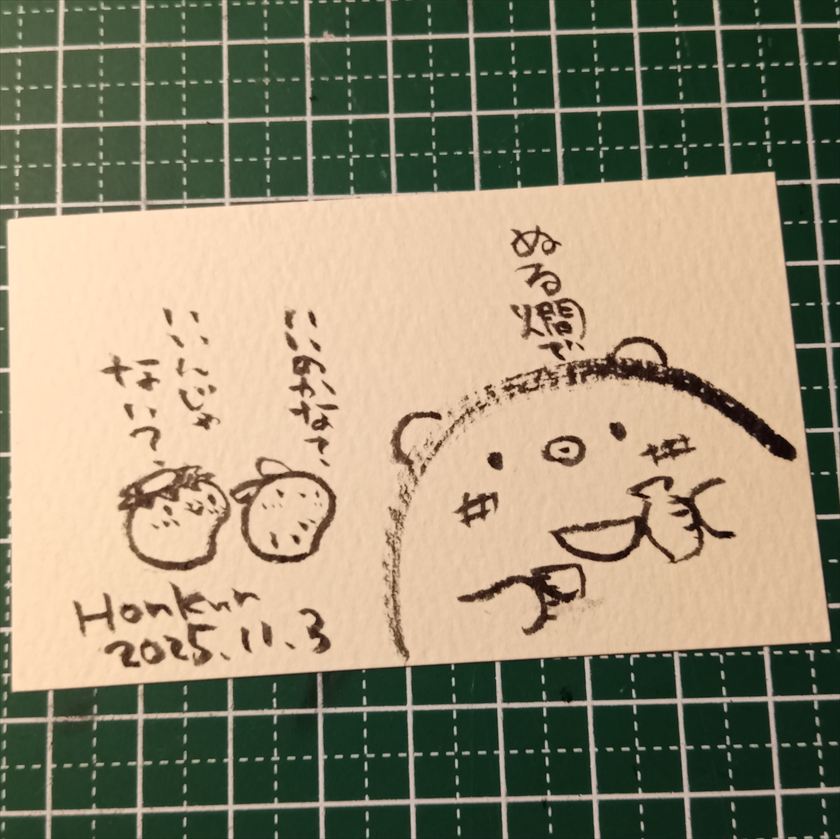 ぬる燗で
いいのかなぁ
いいんじゃ
ないで
Honkun
2025.11.3